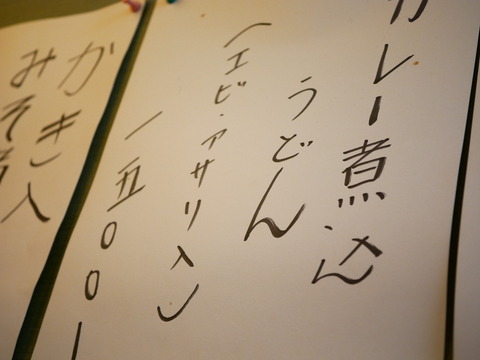 カレー煮込
うどん
(エビ・アサリ入)
一五〇〇
かき入
みそ煮